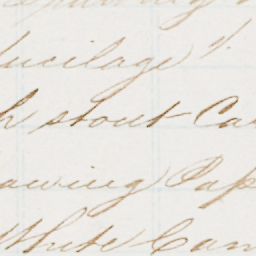 ucilage
h stout Ca
awing Pap
White Can